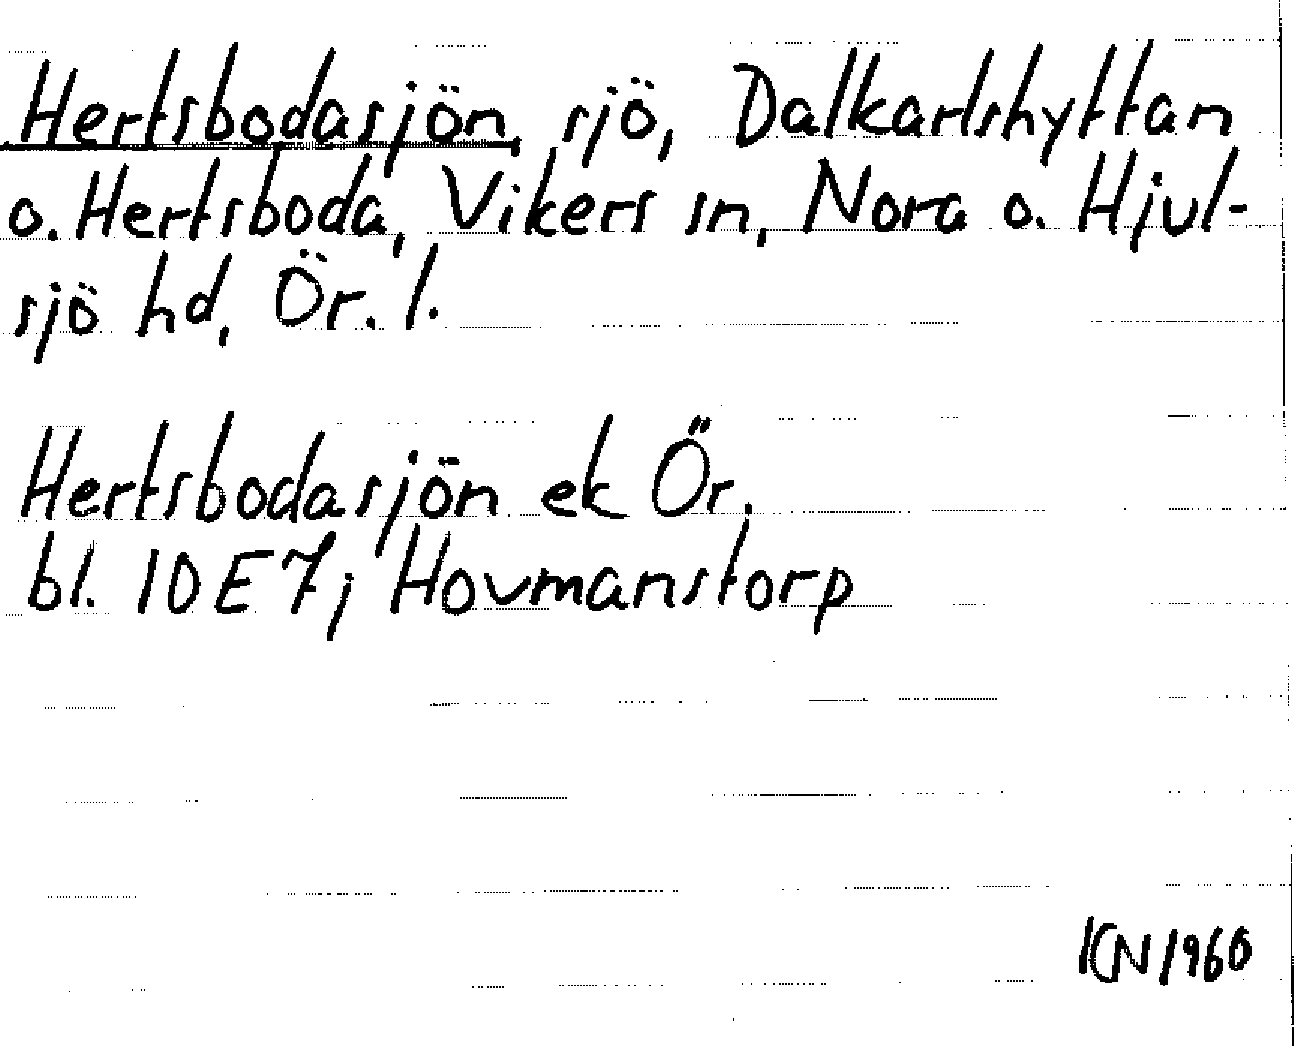 Hertsbodasjön, sjö, Dalkarlshyttan
o. Hertsboda, Vikers sn, Nora o. Hjul-
sjö hd, Ör. l.
Hertsbodasjön ek Ör.
bl. 10E7j Hovmanstorp
KN 1960